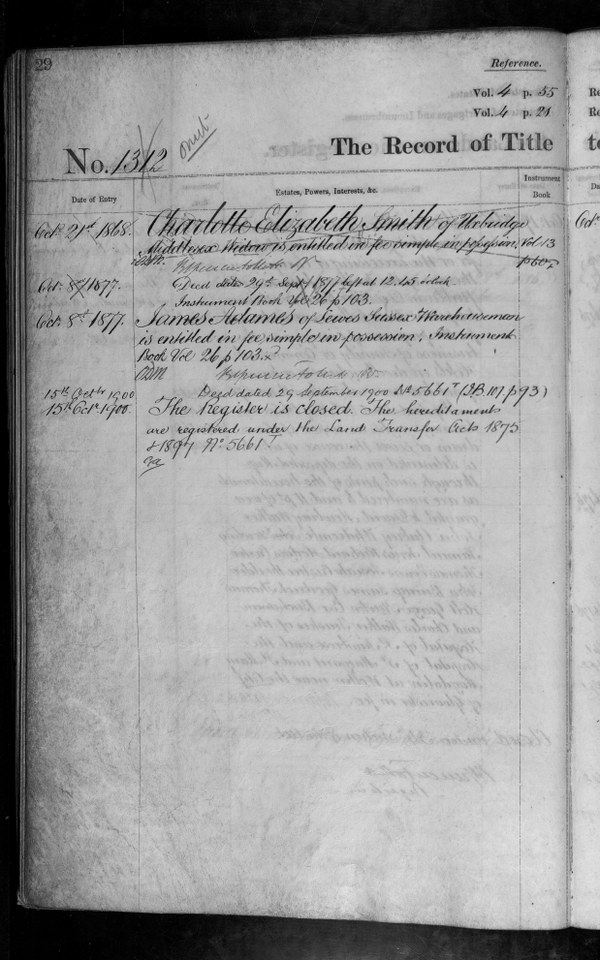 29
Reference.
Vol. 4 p. 55
Vol. 4 p. 21
No. 1312 omit
The Record of Title
Date of Entry
Estates, Powers, Interests, &c.
Instrument Book
Octr. 21st 1868. Charlotte Elizabeth Smith of Uxbridge
Middlesex Widow is entitled in fee simple in possession. Vol 13
p 60
Oct. 8th 1877. Deed dated 29th Septr 1877 left at 12.45 o'clock.
Instrument Book Vol 26 p 103.
Oct. 8th 1877. James Adames of Lewes Sussex Warehouseman
is entitled in fee simple in possession. Instrument
Book Vol 26 p 103.
15th Octr 1900 Deed dated 29 September 1900 No 5661T (I.B. 107. p 93)
15th Octr. 1900. The Register is closed. The hereditaments
are registered under the Land Transfer Acts 1875
& 1897 No. 5661T